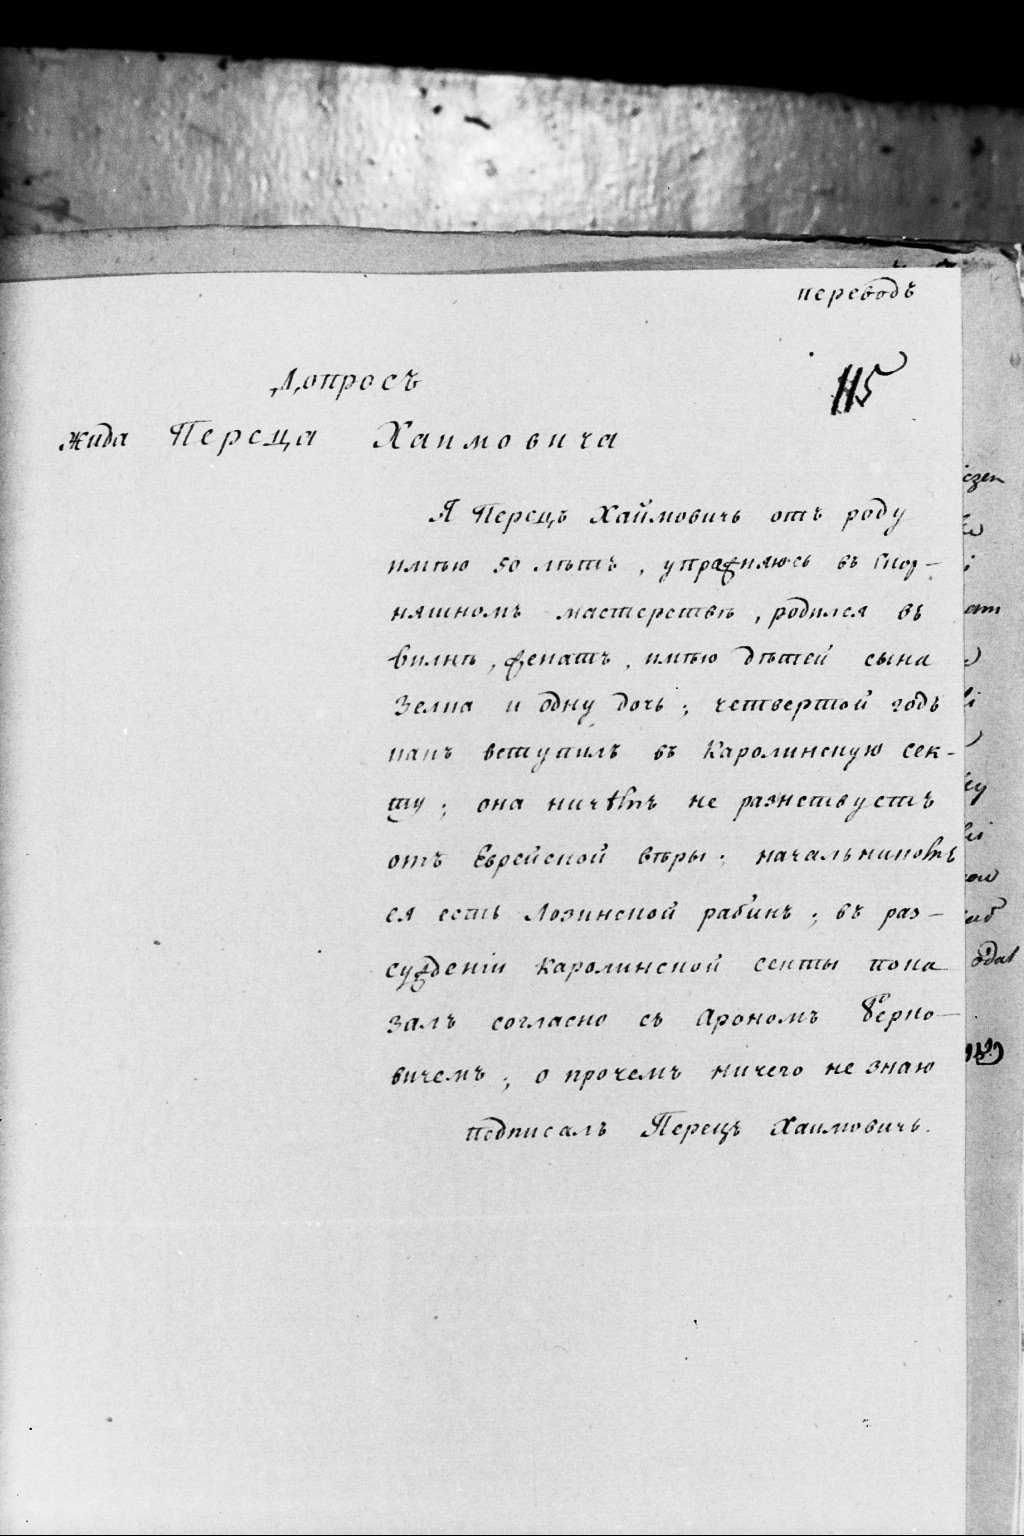 переводъ
115
Допросъ
жида Переца Хаимовича
Я Перецъ Хаймовичь отъ роду
имѣю 50 лѣтъ, упражняюсь въ скор-
няшномъ мастерствѣ, родился въ
Вилнѣ, женатъ, имѣю дѣтей сына
Зелка и одну дочь; четвертой годъ
какъ вступилъ въ Каролинскую сек-
ту; она ничѣмъ не разнствуетъ
отъ Еврейской вѣры; начальникомъ
ея есть Лозинской рабинъ; въ раз-
сужденіи Каролинской секты пока
залъ согласно съ Арономъ Берко-
вичемъ; о прочемъ ничего не знаю
подписалъ Перецъ Хаимовичь.